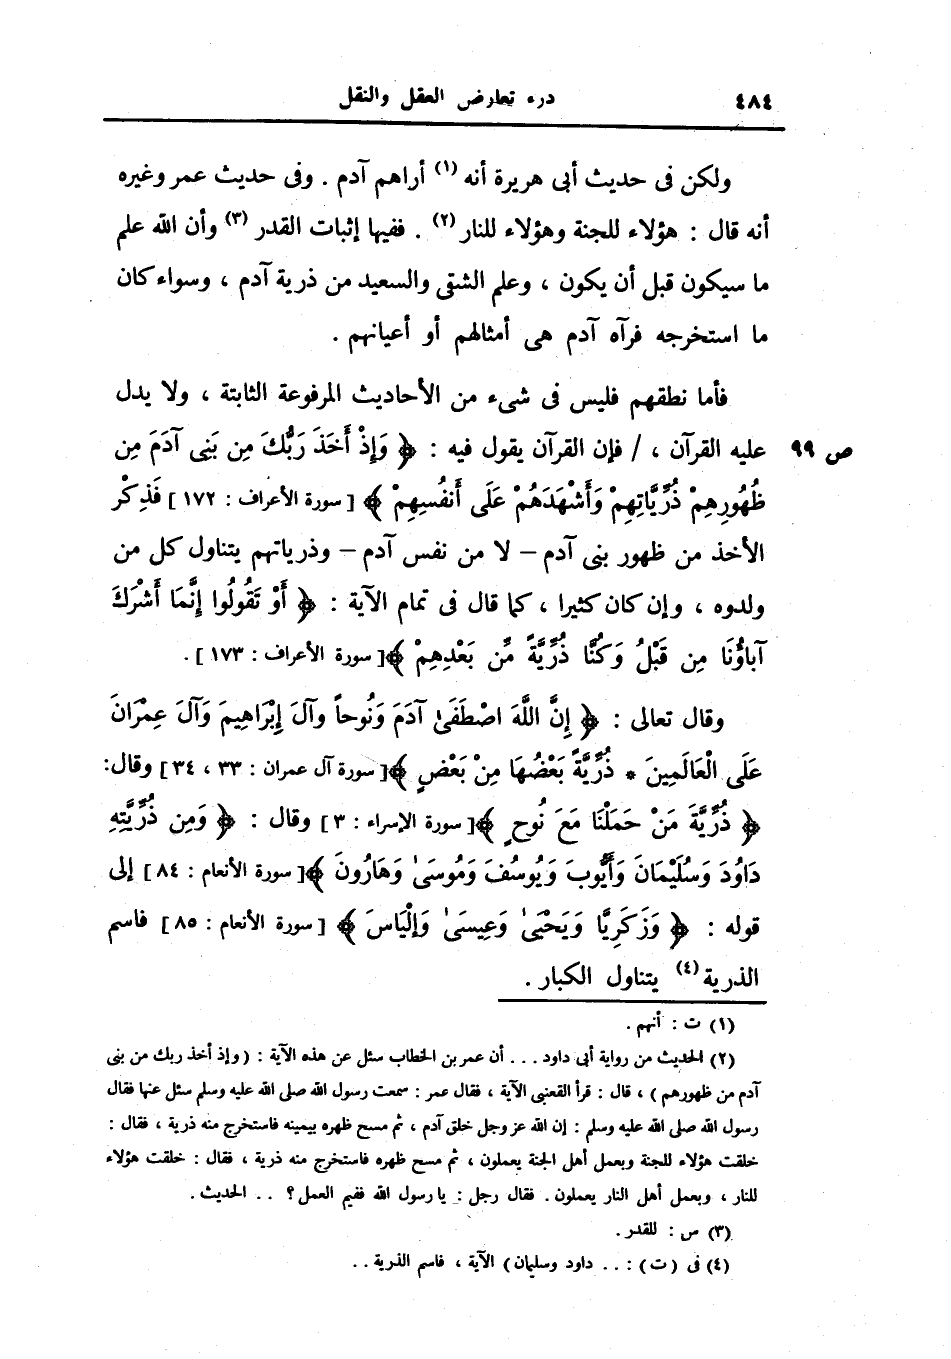 ٤٨٤ درء تعارض العقل والنقل
ولكن فى حديث أبى هريرة أنه (١) أراهم آدم . وفى حديث عمر وغيره
أنه قال : هؤلاء للجنة وهؤلاء للنار (٢) . ففيها إثبات القدر (٣) وأن الله علم
ما سيكون قبل أن يكون ، وعلم الشقى والسعيد من ذرية آدم ، وسواء كان
ما استخرجه فرآه آدم هى أمثالهم أو أعيانهم .
فأما نطقهم فليس فى شىء من الأحاديث المرفوعة الثابتة ، ولا يدل
عليه القرآن ، / فإن القرآن يقول فيه : ﴿ وَإِذْ أَخَذَ رَبُّكَ مِن بَنِى آدَمَ مِن ص ٩٩
ظُهُورِهِمْ ذُرِّيَّاتِهِمْ وَأَشْهَدَهُمْ عَلَى أَنفُسِهِمْ ﴾ [ سورة الأعراف : ١٧٢ ] فَذِكْر
الأخذ من ظهور بنى آدم – لا من نفس آدم – وذرياتهم يتناول كل من
ولدوه ، وإن كان كثيرا ، كما قال فى تمام الآية : ﴿ أَوْ تَقُولُوا إِنَّمَا أَشْرَكَ
آباؤُنَا مِن قَبْلُ وَكُنَّا ذُرِّيَّةً مِّن بَعْدِهِمْ ﴾[ سورة الأعراف : ١٧٣ ] .
وقال تعالى : ﴿ إِنَّ اللَّهَ اصْطَفَىٰ آدَمَ وَنُوحاً وَآلَ إِبْرَاهِيمَ وَآلَ عِمْرَانَ
عَلَى الْعَالَمِينَ * ذُرِّيَّةً بَعْضُهَا مِنْ بَعْضٍ ﴾[ سورة آل عمران : ٣٣ ، ٣٤ ] وقال:
﴿ ذُرِّيَّةَ مَنْ حَمَلْنَا مَعَ نُوحٍ ﴾[ سورة الإسراء : ٣ ] وقال : ﴿ وَمِن ذُرِّيَّتِهِ
دَاوُدَ وَسُلَيْمَانَ وَأَيُّوبَ وَيُوسُفَ وَمُوسَىٰ وَهَارُونَ ﴾[ سورة الأنعام : ٨٤ ] إلى
قوله : ﴿ وَزَكَرِيَّا وَيَحْيَىٰ وَعِيسَىٰ وَإِلْيَاسَ ﴾ [ سورة الأنعام : ٨٥ ] فاسم
الذرية (٤) يتناول الكبار .
(١) ت : أنهم .
(٢) الحديث من رواية أبى داود . . . أن عمر بن الخطاب سئل عن هذه الآية : ( وإذ أخذ ربك من بنى
آدم من ظهورهم ) ، قال : قرأ القعنبى الآية ، فقال عمر : سمعت رسول الله صلى الله عليه وسلم سئل عنها فقال
رسول الله صلى الله عليه وسلم : إن الله عز وجل خلق آدم ، ثم مسح ظهره بيمينه فاستخرج منه ذرية ، فقال :
خلقت هؤلاء للجنة وبعمل أهل الجنة يعملون ، ثم مسح ظهره فاستخرج منه ذرية ، فقال : خلقت هؤلاء
للنار ، وبعمل أهل النار يعملون . فقال رجل : يا رسول الله ففيم العمل ؟ . . الحديث .
(٣) س : للقدر .
(٤) فى ( ت ) : . . داود وسليمان ) الآية ، فاسم الذرية . .